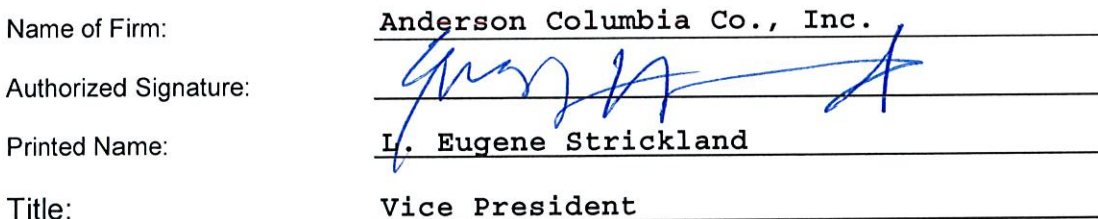 Name of Firm: Anderson Columbia Co., Inc.
Authorized Signature:
Printed Name: L. Eugene Strickland
Title: Vice President